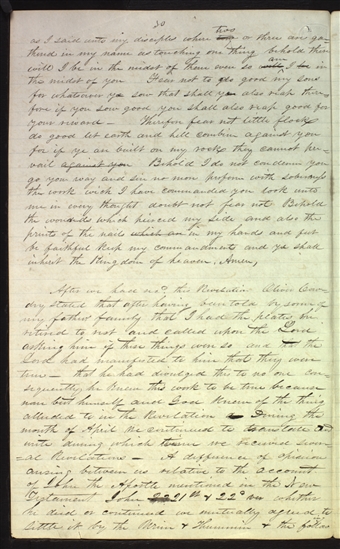 30
as I said unto my deciples where two or three are ga-
therd in my name as touching one thing behold there
will I be in the midst of them even so am I in
the midst of you Fear not to do good my sons
for whatsoever ye sow that shall ye also reap there
fore if you sow good you shall also reap good for
your reward — Therefore fear not little flock
do good let earth and hell combine against you
for if ye are built on my rock they cannot pre-
vail against you Behold I do not condemn you
go your way and sin no more perform with soberness
the work wich I have commanded you look unto
me in every thought doubt not fear not Behold
the wounds which pierced my side and also the
prints of the nails in my hands and feet
be faithful keep my commandments and ye shall
inherit the Kingdom of heaven, Amen,
After we had recd. this Revelation Oliver Cow-
dry stated that after having been to
my fathers family that I had the plates, he
retired to and called upon the Lord
asking him if these things were so, and the
Lord had manifested to him that they were
true — that he had divulged this to no one con-
sequently he knew this work to be true because
none but himself and God knew of the thing
alluded to in the Revelation During the
month of April we continued to translate and
write during which time we received sever-
al Revelations — A difference of opinion
arising between us relative to the account
of John the Apostle mentioned in the New
Testament John 21st & 22d whether
he died or continued we mutually agreed to
settle it by the Urim & Thummim & the follow